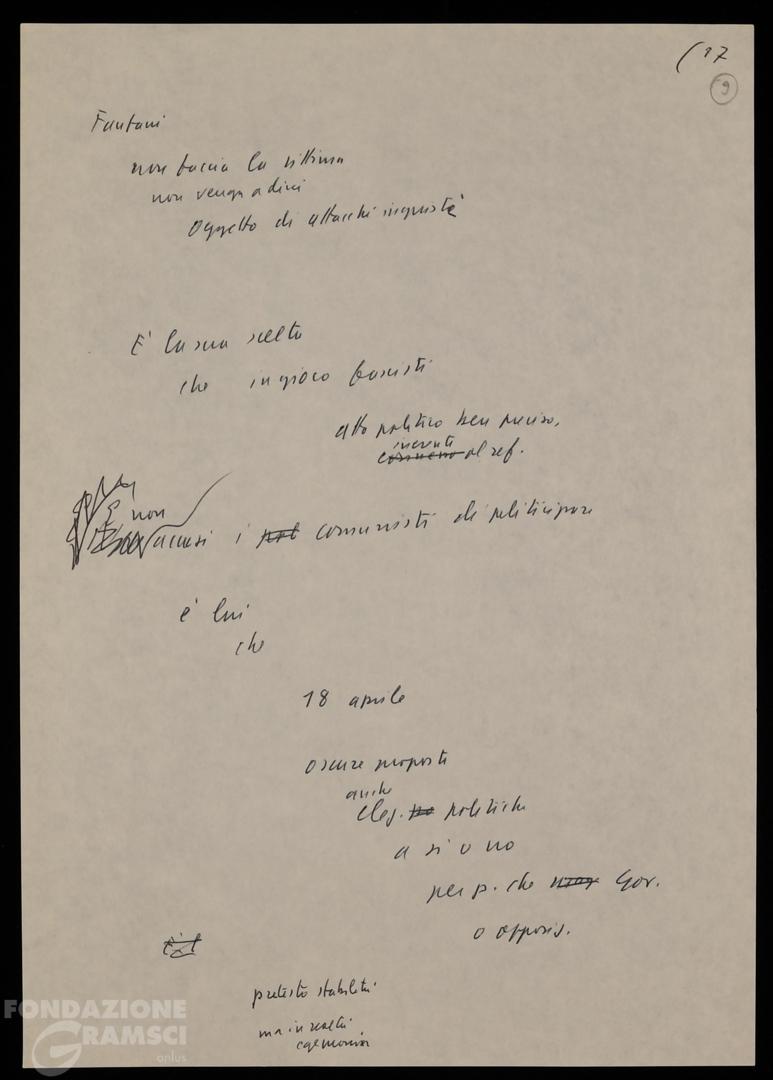 (17
9
Fanfani
non faccia la vittima
non venga a dirci
oggetto di attacchi ingiusti
E' la sua scelta
che in gioco fascisti
atto politico ben preciso,
inerente
al ref.
non
accusi i comunisti di politicizzare
è lui
che
18 aprile
oscure proposte
anche
elez. politiche
a sì o no
per p. che Gov.
o oppos.
pretesto stabilità
ma in realtà
egemonia
FONDAZIONE
GRAMSCI
onlus